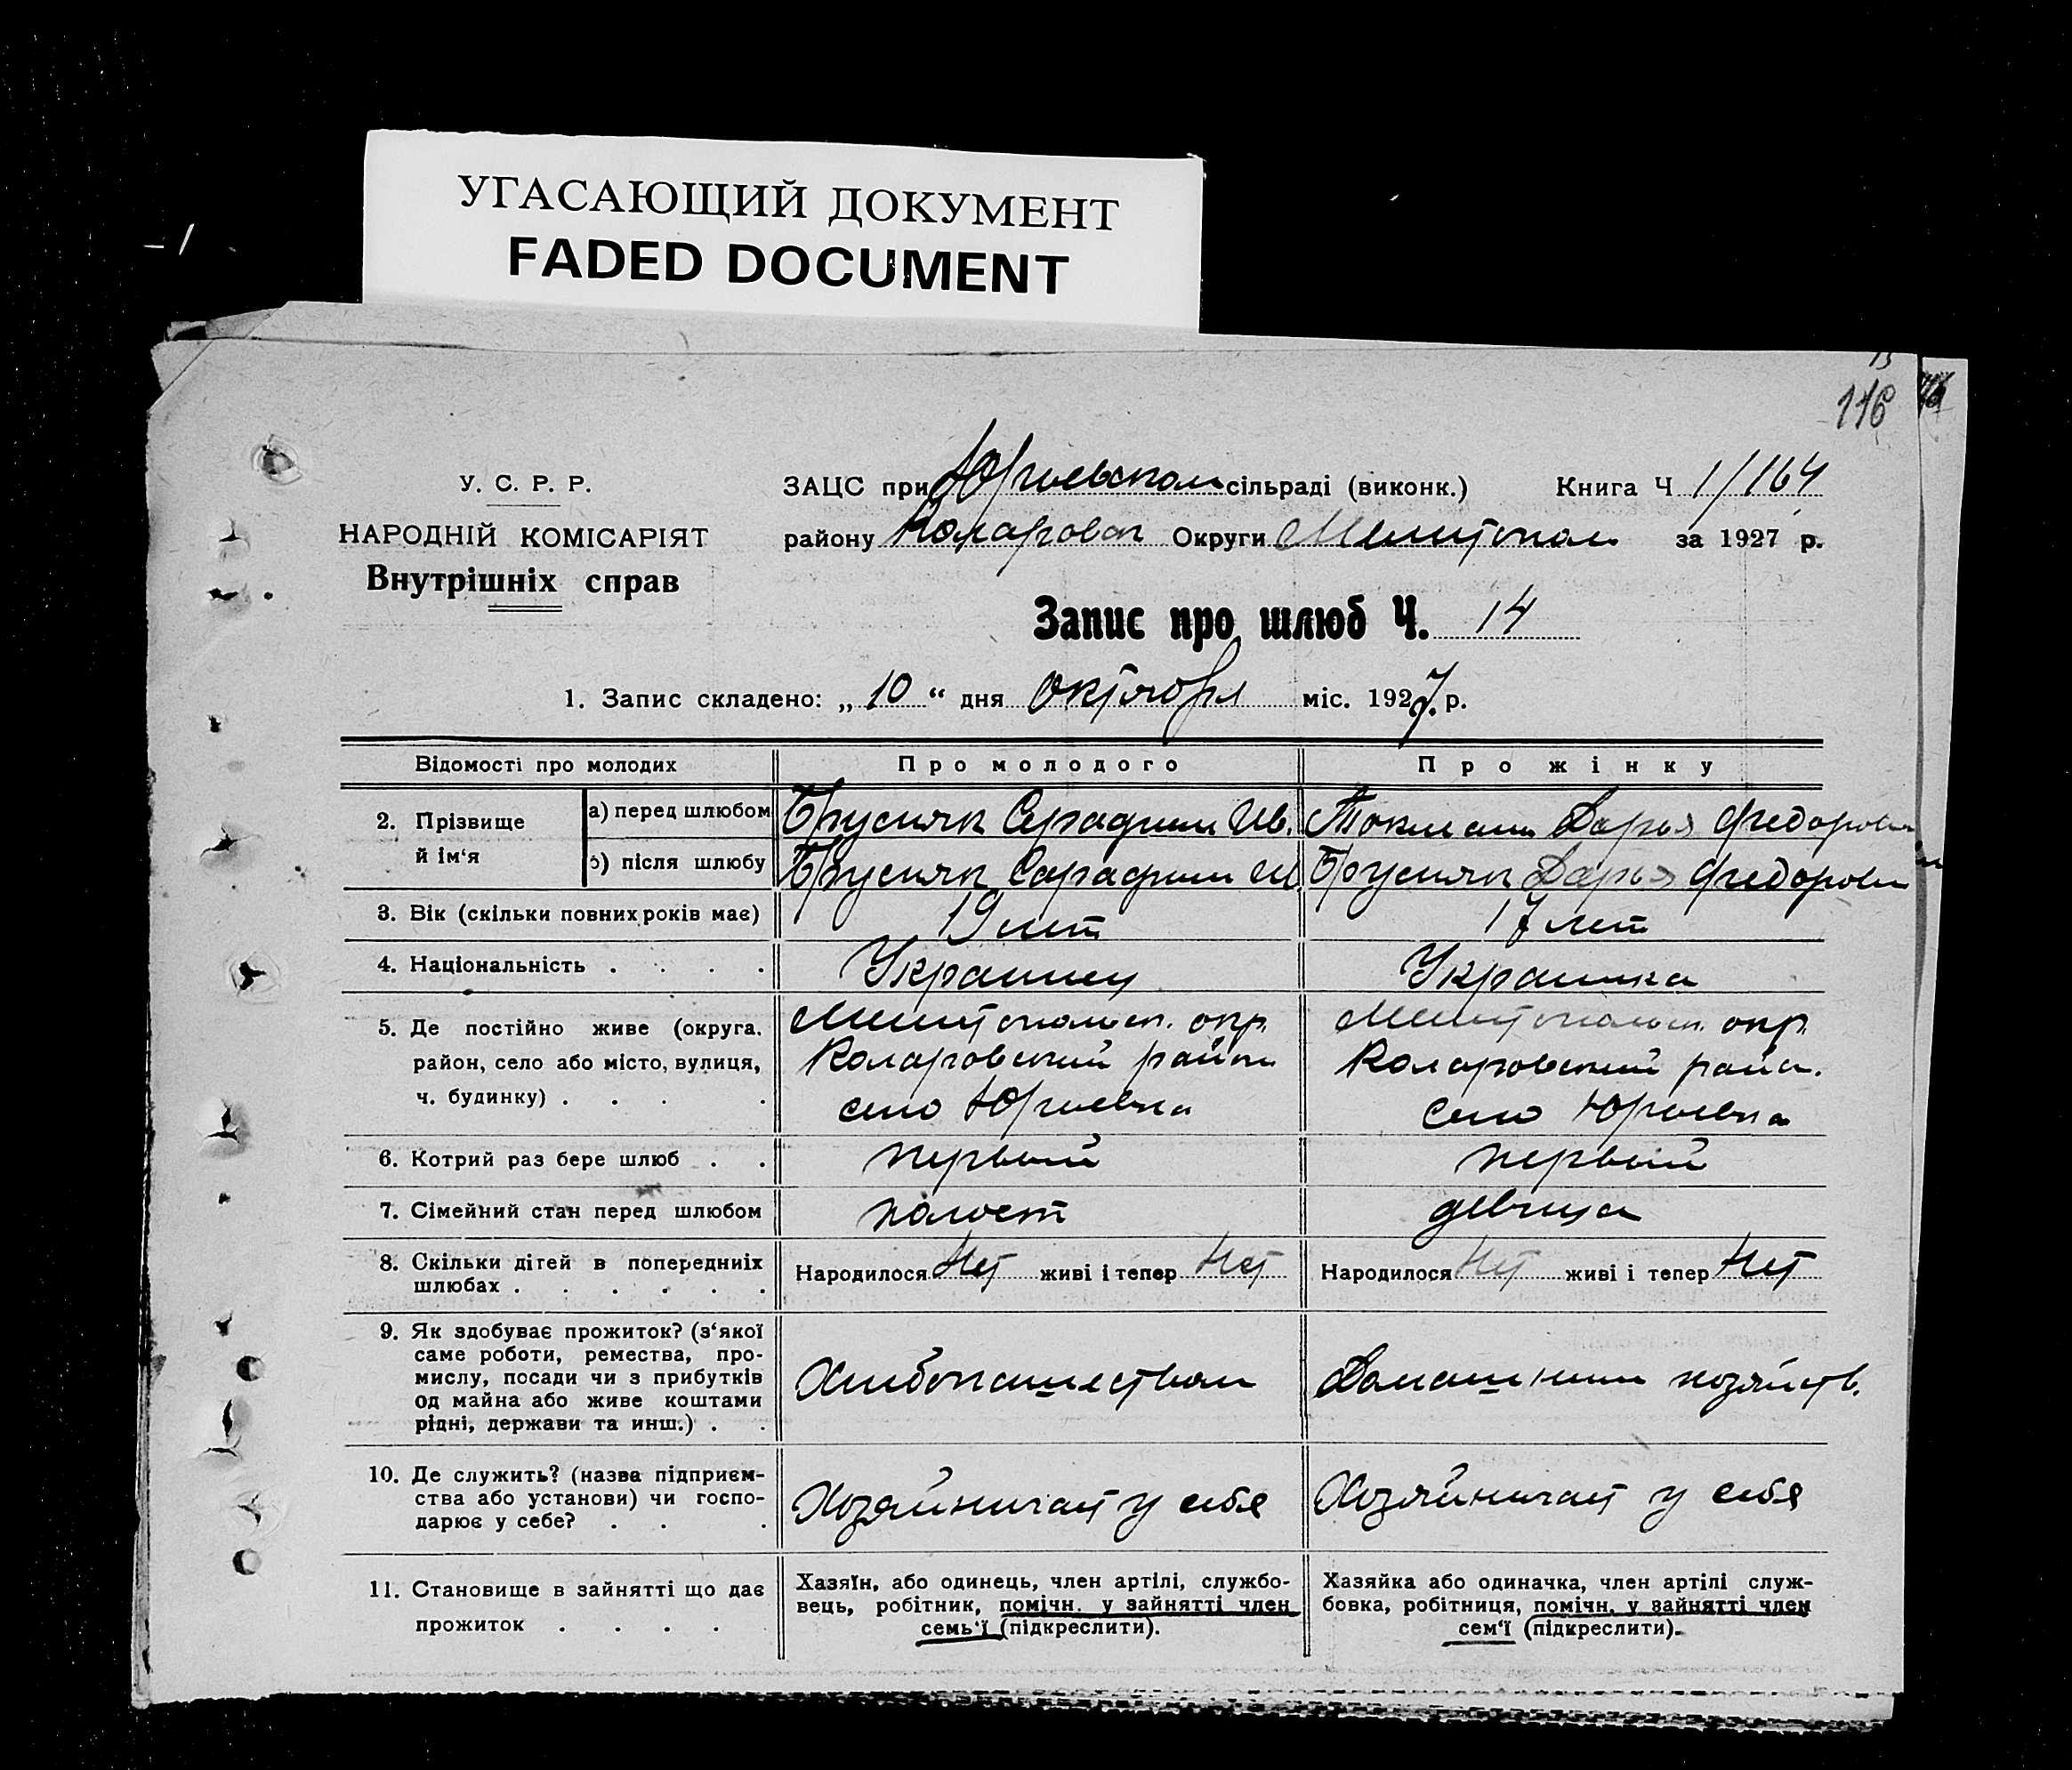 УГАСАЮЩИЙ ДОКУМЕНТ
FADED DOCUMENT
116
У. С. Р. Р.
НАРОДНІЙ КОМІСАРІЯТ
Внутрішніх справ
ЗАЦС при Юрьевском сільраді (виконк.) Книга Ч 1/164
району Коларовск Округи Мелитопол за 1927 р.
Запис про шлюб Ч. 14
1. Запис складено: „ 10 “ дня октября міс. 1927. р.
Відомості про молодих Про молодого Про жінку
2. Прізвище й ім‘я
а) перед шлюбом Серафим Ив. Дарья Федоровн
б) після шлюбу Серафим Ив. Дарья Федоровн
3. Вік (скільки повних років має) 19 лет 17 лет
4. Національність . . . . Украинец Украинка
5. Де постійно живе (округа, Мелитопольск. окр. Мелитопольск. окр.
район, село або місто, вулиця, Коларовский район Коларовский район.
ч. будинку) . . . . село Юрьевка село Юрьевка
6. Котрий раз бере шлюб . . первый первый
7. Сімейний стан перед шлюбом холост девица
8. Скільки дітей в попередніх Народилося Нет живі і тепер Нет Народилося Нет живі і тепер Нет
шлюбах . . . . . .
9. Як здобуває прожиток? (з‘якої
саме роботи, ремества, про-
мислу, посади чи з прибутків Хлебопашеством Домашним хозяйств.
од майна або живе коштами
рідні, держави та инш.) . .
10. Де служить? (назва підприєм-
ства або установи) чи госпо- Хозяйничает у себя Хозяйничает у себя
дарює у себе? . . .
11. Становище в зайнятті що дає Хазяїн, або одинець, член артілі, службо- Хазяйка або одиначка, член артілі служ-
вець, робітник, помічн. у зайнятті член бовка, робітниця, помічн. у зайнятті член
прожиток . . . . семь‘ї (підкреслити). сем‘ї (підкреслити).